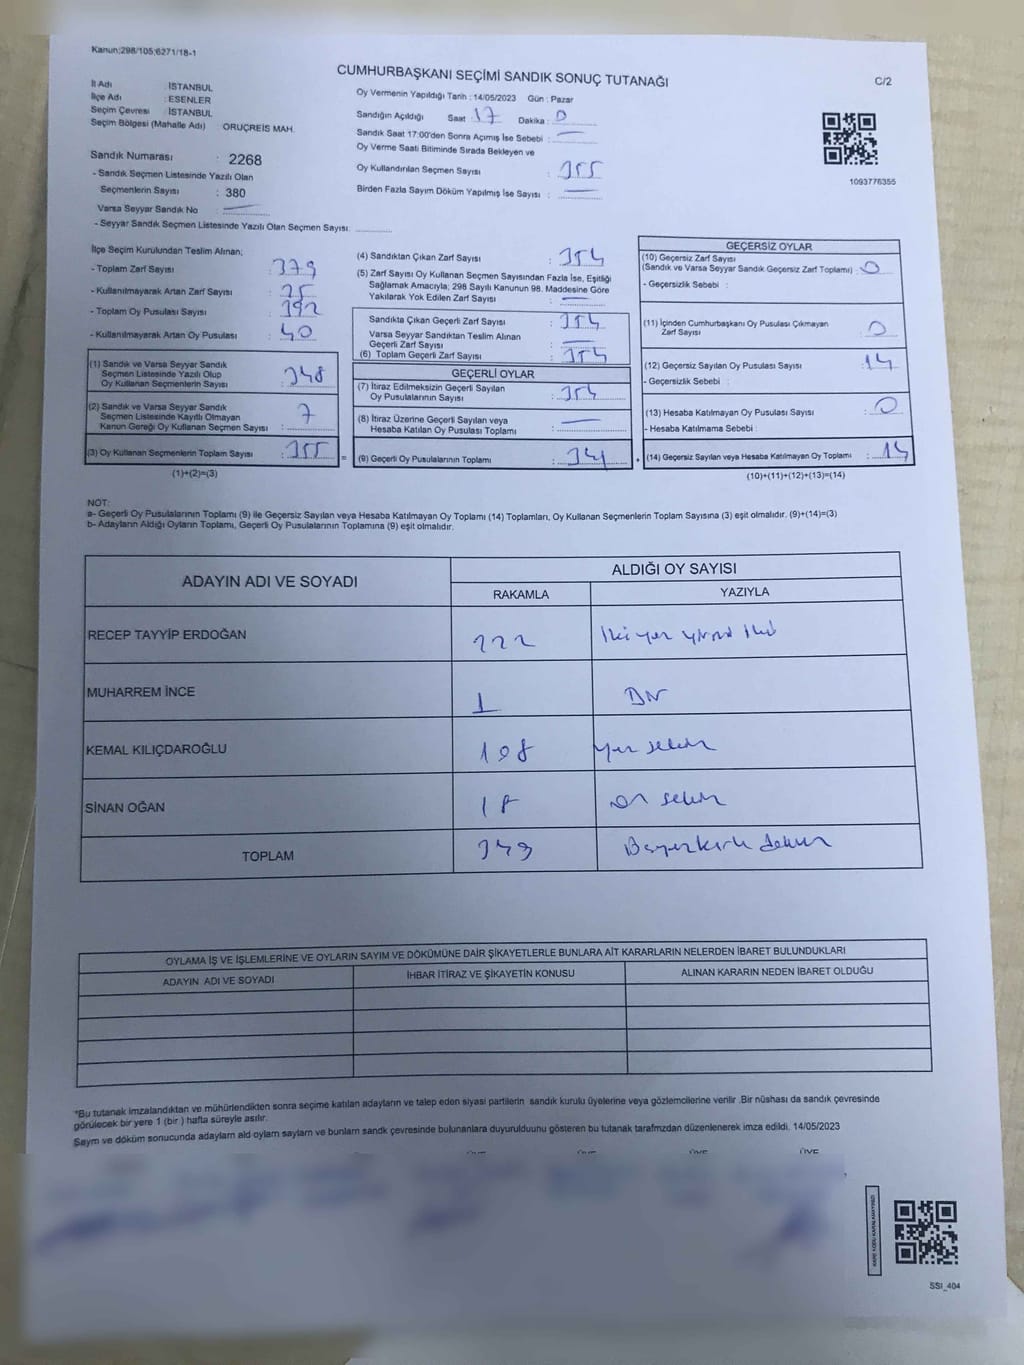 Kanun;298/105;6271/18-1
CUMHURBAŞKANI SEÇİMİ SANDIK SONUÇ TUTANAĞI
C/2
İl Adı : İSTANBUL
İlçe Adı : ESENLER
Seçim Çevresi : İSTANBUL
Seçim Bölgesi (Mahalle Adı) : ORUÇREİS MAH.
Sandık Numarası : 2268
- Sandık Seçmen Listesinde Yazılı Olan
Seçmenlerin Sayısı : 380
Varsa Seyyar Sandık No : —
- Seyyar Sandık Seçmen Listesinde Yazılı Olan Seçmen Sayısı:
Oy Vermenin Yapıldığı Tarih : 14/05/2023 Gün : Pazar
Sandığın Açıldığı Saat : 17 Dakika : 0
Sandık Saat 17:00'den Sonra Açımış İse Sebebi : —
Oy Verme Saati Bitiminde Sırada Bekleyen ve
Oy Kullandırılan Seçmen Sayısı : 355
Birden Fazla Sayım Döküm Yapılmış İse Sayısı : —
1093776355
İlçe Seçim Kurulundan Teslim Alınan;
- Toplam Zarf Sayısı : 379
- Kullanılmayarak Artan Zarf Sayısı : 25
- Toplam Oy Pusulası Sayısı : 392
- Kullanılmayarak Artan Oy Pusulası : 40
(1) Sandık ve Varsa Seyyar Sandık
Seçmen Listesinde Yazılı Olup
Oy Kullanan Seçmenlerin Sayısı : 348
(2) Sandık ve Varsa Seyyar Sandık
Seçmen Listesinde Kayıtlı Olmayan
Kanun Gereği Oy Kullanan Seçmen Sayısı : 7
(3) Oy Kullanan Seçmenlerin Toplam Sayısı : 355
(1)+(2)=(3)
(4) Sandıktan Çıkan Zarf Sayısı : 354
(5) Zarf Sayısı Oy Kullanan Seçmen Sayısından Fazla İse, Eşitliği
Sağlamak Amacıyla; 298 Sayılı Kanunun 98. Maddesine Göre
Yakılarak Yok Edilen Zarf Sayısı : —
Sandıkta Çıkan Geçerli Zarf Sayısı : 354
Varsa Seyyar Sandıktan Teslim Alınan
Geçerli Zarf Sayısı : —
(6) Toplam Geçerli Zarf Sayısı : 354
GEÇERLİ OYLAR
(7) İtiraz Edilmeksizin Geçerli Sayılan
Oy Pusulalarının Sayısı : 354
(8) İtiraz Üzerine Geçerli Sayılan veya
Hesaba Katılan Oy Pusulası Toplamı : —
= (9) Geçerli Oy Pusulalarının Toplamı :
GEÇERSİZ OYLAR
(10) Geçersiz Zarf Sayısı
(Sandık ve Varsa Seyyar Sandık Geçersiz Zarf Toplamı) : 0
- Geçersizlik Sebebi :
(11) İçinden Cumhurbaşkanı Oy Pusulası Çıkmayan
Zarf Sayısı : 0
(12) Geçersiz Sayılan Oy Pusulası Sayısı : 14
- Geçersizlik Sebebi :
(13) Hesaba Katılmayan Oy Pusulası Sayısı : 0
- Hesaba Katılmama Sebebi :
+ (14) Geçersiz Sayılan veya Hesaba Katılmayan Oy Toplamı : 14
(10)+(11)+(12)+(13)=(14)
NOT:
a- Geçerli Oy Pusulalarının Toplamı (9) ile Geçersiz Sayılan veya Hesaba Katılmayan Oy Toplamı (14) Toplamları, Oy Kullanan Seçmenlerin Toplam Sayısına (3) eşit olmalıdır. (9)+(14)=(3)
b- Adayların Aldığı Oyların Toplamı, Geçerli Oy Pusulalarının Toplamına (9) eşit olmalıdır.
ADAYIN ADI VE SOYADI ALDIĞI OY SAYISI
RAKAMLA YAZIYLA
RECEP TAYYİP ERDOĞAN 222 İki yüz yirmi iki
MUHARREM İNCE 1 BİR
KEMAL KILIÇDAROĞLU 108 yüz sekiz
SİNAN OĞAN 18 on sekiz
TOPLAM 349
OYLAMA İŞ VE İŞLEMLERİNE VE OYLARIN SAYIM VE DÖKÜMÜNE DAİR ŞİKAYETLERLE BUNLARA AİT KARARLARIN NELERDEN İBARET BULUNDUKLARI
ADAYIN ADI VE SOYADI İHBAR İTİRAZ VE ŞİKAYETİN KONUSU ALINAN KARARIN NEDEN İBARET OLDUĞU
*Bu tutanak imzalandıktan ve mühürlendikten sonra seçime katılan adayların ve talep eden siyasi partilerin sandık kurulu üyelerine veya gözlemcilerine verilir .Bir nüshası da sandık çevresinde
görülecek bir yere 1 (bir ) hafta süreyle asılır.
Saym ve döküm sonucunda adaylarn ald oylarn saylarn ve bunlarn sandk çevresinde bulunanlara duyurulduunu gösteren bu tutanak tarafmzdan düzenlenerek imza edildi. 14/05/2023
ÜYE ÜYE ÜYE ÜYE
SSI_404